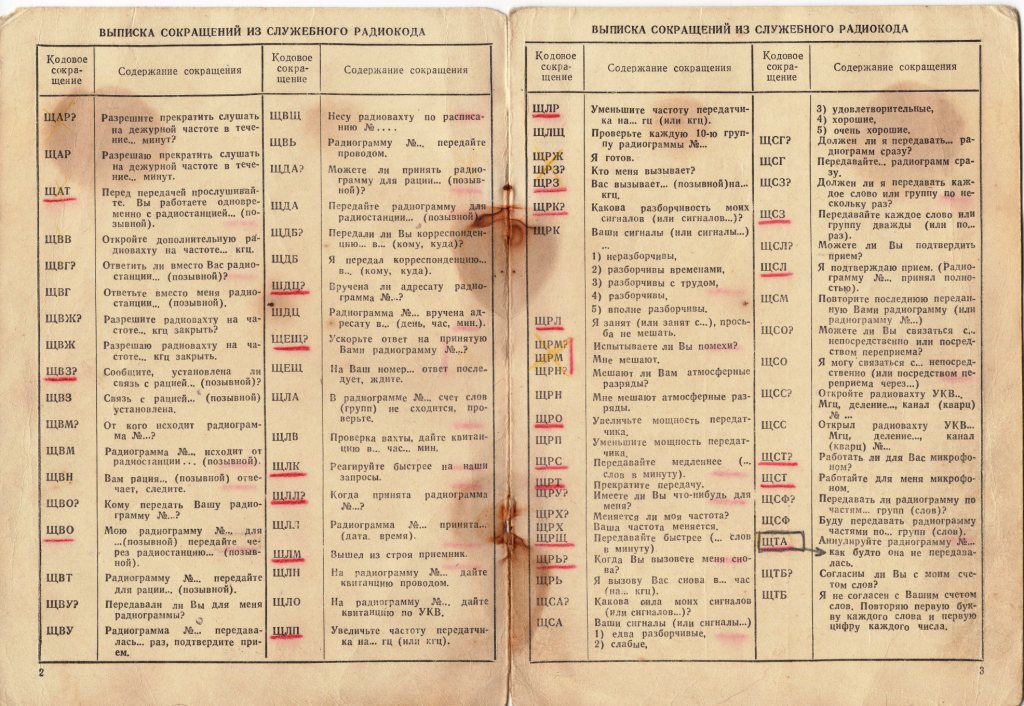 ВЫПИСКА СОКРАЩЕНИЙ ИЗ СЛУЖЕБНОГО РАДИОКОДА
Кодовое
сокра-
щение
Содержание сокращения
ЩАР? Разрешите прекратить слушать
на дежурной частоте в тече-
ние... минут?
ЩАР Разрешаю прекратить слушать
на дежурной частоте в тече-
ние... минут.
ЩАТ Перед передачей прослушивай-
те. Вы работаете одновре-
менно с радиостанцией... (по-
зывной).
ЩВВ Откройте дополнительную ра-
диовахту на частоте... кгц.
ЩВГ? Ответить ли вместо Вас радио-
станции... (позывной)?
ЩВГ Ответьте вместо меня радио-
станции... (позывной).
ЩВЖ? Разрешите радиовахту на ча-
стоте... кгц закрыть?
ЩВЖ Разрешаю радиовахту на ча-
стоте... кгц закрыть.
ЩВЗ? Сообщите, установлена ли
связь с рацией... (позывной)?
ЩВЗ Связь с рацией... (позывной)
установлена.
ЩВМ? От кого исходит радиограм-
ма №...?
ЩВМ Радиограмма №... исходит от
радиостанции... (позывной).
ЩВН Вам рация... (позывной) отве-
чает, следите.
ЩВО? Кому передать Вашу радио-
грамму №...?
ЩВО Мою радиограмму №... для
...(позывной) передайте че-
рез радиостанцию... (позыв-
ной).
ЩВТ Радиограмму №... передайте
для рации... (позывной).
ЩВУ? Передавали ли Вы для меня
радиограммы?
ЩВУ Радиограмма №... передава-
лась... раз, подтвердите при-
ем.
Кодовое
сокра-
щение
Содержание сокращения
ЩВЩ Несу радиовахту по расписа-
нию №....
ЩВЬ Радиограмму №... передайте
проводом.
ЩДА? Можете ли принять радио-
грамму для рации... (позыв-
ной)?
ЩДА Передайте радиограмму для
радиостанции... (позывной)
ЩДБ? Передали ли Вы корреспонден-
цию... в... (кому, куда)?
ЩДБ Я передал корреспонденцию...
в... (кому, куда).
ЩДЦ? Вручена ли адресату радио-
грамма №..?
ЩДЦ Радиограмма №... вручена ад-
ресату в... (день, час, мин.).
ЩЕЩ? Ускорьте ответ на принятую
Вами радиограмму №...?
ЩЕЩ На Ваш номер... ответ после-
дует, ждите.
ЩЛА В радиограмме №... счет слов
(групп) не сходится, про-
верьте.
ЩЛВ Проверка вахты, дайте квитан-
цию в... час... мин.
ЩЛК Реагируйте быстрее на наши
запросы.
ЩЛЛ? Когда принята радиограмма
№...?
ЩЛЛ Радиограмма №... принята...
(дата, время).
ЩЛМ Вышел из строя приемник.
ЩЛН На радиограмму №... дайте
квитанцию проводом.
ЩЛО На радиограмму №... дайте
квитанцию по УКВ.
ЩЛП Увеличьте частоту передатчи-
ка на... гц (или кгц).
2
ВЫПИСКА СОКРАЩЕНИЙ ИЗ СЛУЖЕБНОГО РАДИОКОДА
Кодовое
сокра-
щение
Содержание сокращения
ЩЛР Уменьшите частоту передатчи-
ка на... гц (или кгц).
ЩЛЩ Проверьте каждую 10-ю груп-
пу радиограммы №...
ЩРЖ Я готов.
ЩРЗ? Кто меня вызывает?
ЩРЗ Вас вызывает... (позывной)на...
кгц.
ЩРК? Какова разборчивость моих
сигналов (или сигналов...)?
ЩРК Ваши сигналы (или сигналы...)
...
1) неразборчивы,
2) разборчивы временами,
3) разборчивы с трудом,
4) разборчивы,
5) вполне разборчивы.
ЩРЛ Я занят (или занят с...), прось-
ба не мешать.
ЩРМ? Испытываете ли Вы помехи?
ЩРМ Мне мешают.
ЩРН? Мешают ли Вам атмосферные
разряды?
ЩРН Мне мешают атмосферные раз-
ряды.
ЩРО Увеличьте мощность передат-
чика.
ЩРП Уменьшите мощность передат-
чика.
ЩРС Передавайте медленнее (...
слов в минуту).
ЩРТ Прекратите передачу.
ЩРУ? Имеете ли Вы что-нибудь для
меня?
ЩРХ? Меняется ли моя частота?
ЩРХ Ваша частота меняется.
ЩРЩ Передавайте быстрее (... слов
в минуту)
ЩРЬ? Когда Вы вызовете меня сно-
ва?
ЩРЬ Я вызову Вас снова в... час
(на... кгц).
ЩСА? Какова сила моих сигналов
(или сигналов...)?
ЩСА Ваши сигналы (или сигналы...)
1) едва разборчивые,
2) слабые,
Кодовое
сокра-
щение
Содержание сокращения
3) удовлетворительные,
4) хорошие,
5) очень хорошие.
ЩСГ? Должен ли я передавать... ра-
диограмм сразу?
ЩСГ Передавайте... радиограмм сра-
зу.
ЩСЗ? Должен ли я передавать каж-
дое слово или группу по не-
скольку раз?
ЩСЗ Передавайте каждое слово или
группу дважды (или по...
раз).
ЩСЛ? Можете ли Вы подтвердить
прием?
ЩСЛ Я подтверждаю прием. (Радио-
грамму №... принял полно-
стью).
ЩСМ Повторите последнюю передан-
ную Вами радиограмму (или
радиограмму №...)
ЩСО? Можете ли Вы связаться с...
непосредственно или посред-
ством переприема?
ЩСО Я могу связаться с... непосредст-
венно (или посредством пе-
реприема через...)
ЩСС? Откройте радиовахту УКВ...
Мгц, деление..., канал (кварц)
№ ...
ЩСС Открыл радиовахту УКВ...
Мгц, деление..., канал
(кварц) №...
ЩСТ? Работать ли для Вас микрофо-
ном?
ЩСТ Работайте для меня микрофо-
ном.
ЩСФ? Передавать ли радиограмму по
частям... групп (слов)?
ЩСФ Буду передавать радиограмму
частями по... групп (слов).
ЩТА Аннулируйте радиограмму №...
как будто она не передава-
лась.
ЩТБ? Согласны ли Вы с моим сче-
том слов?
ЩТБ Я не согласен с Вашим счетом
слов. Повторяю первую бук-
ву каждого слова и первую
цифру каждого числа.
3